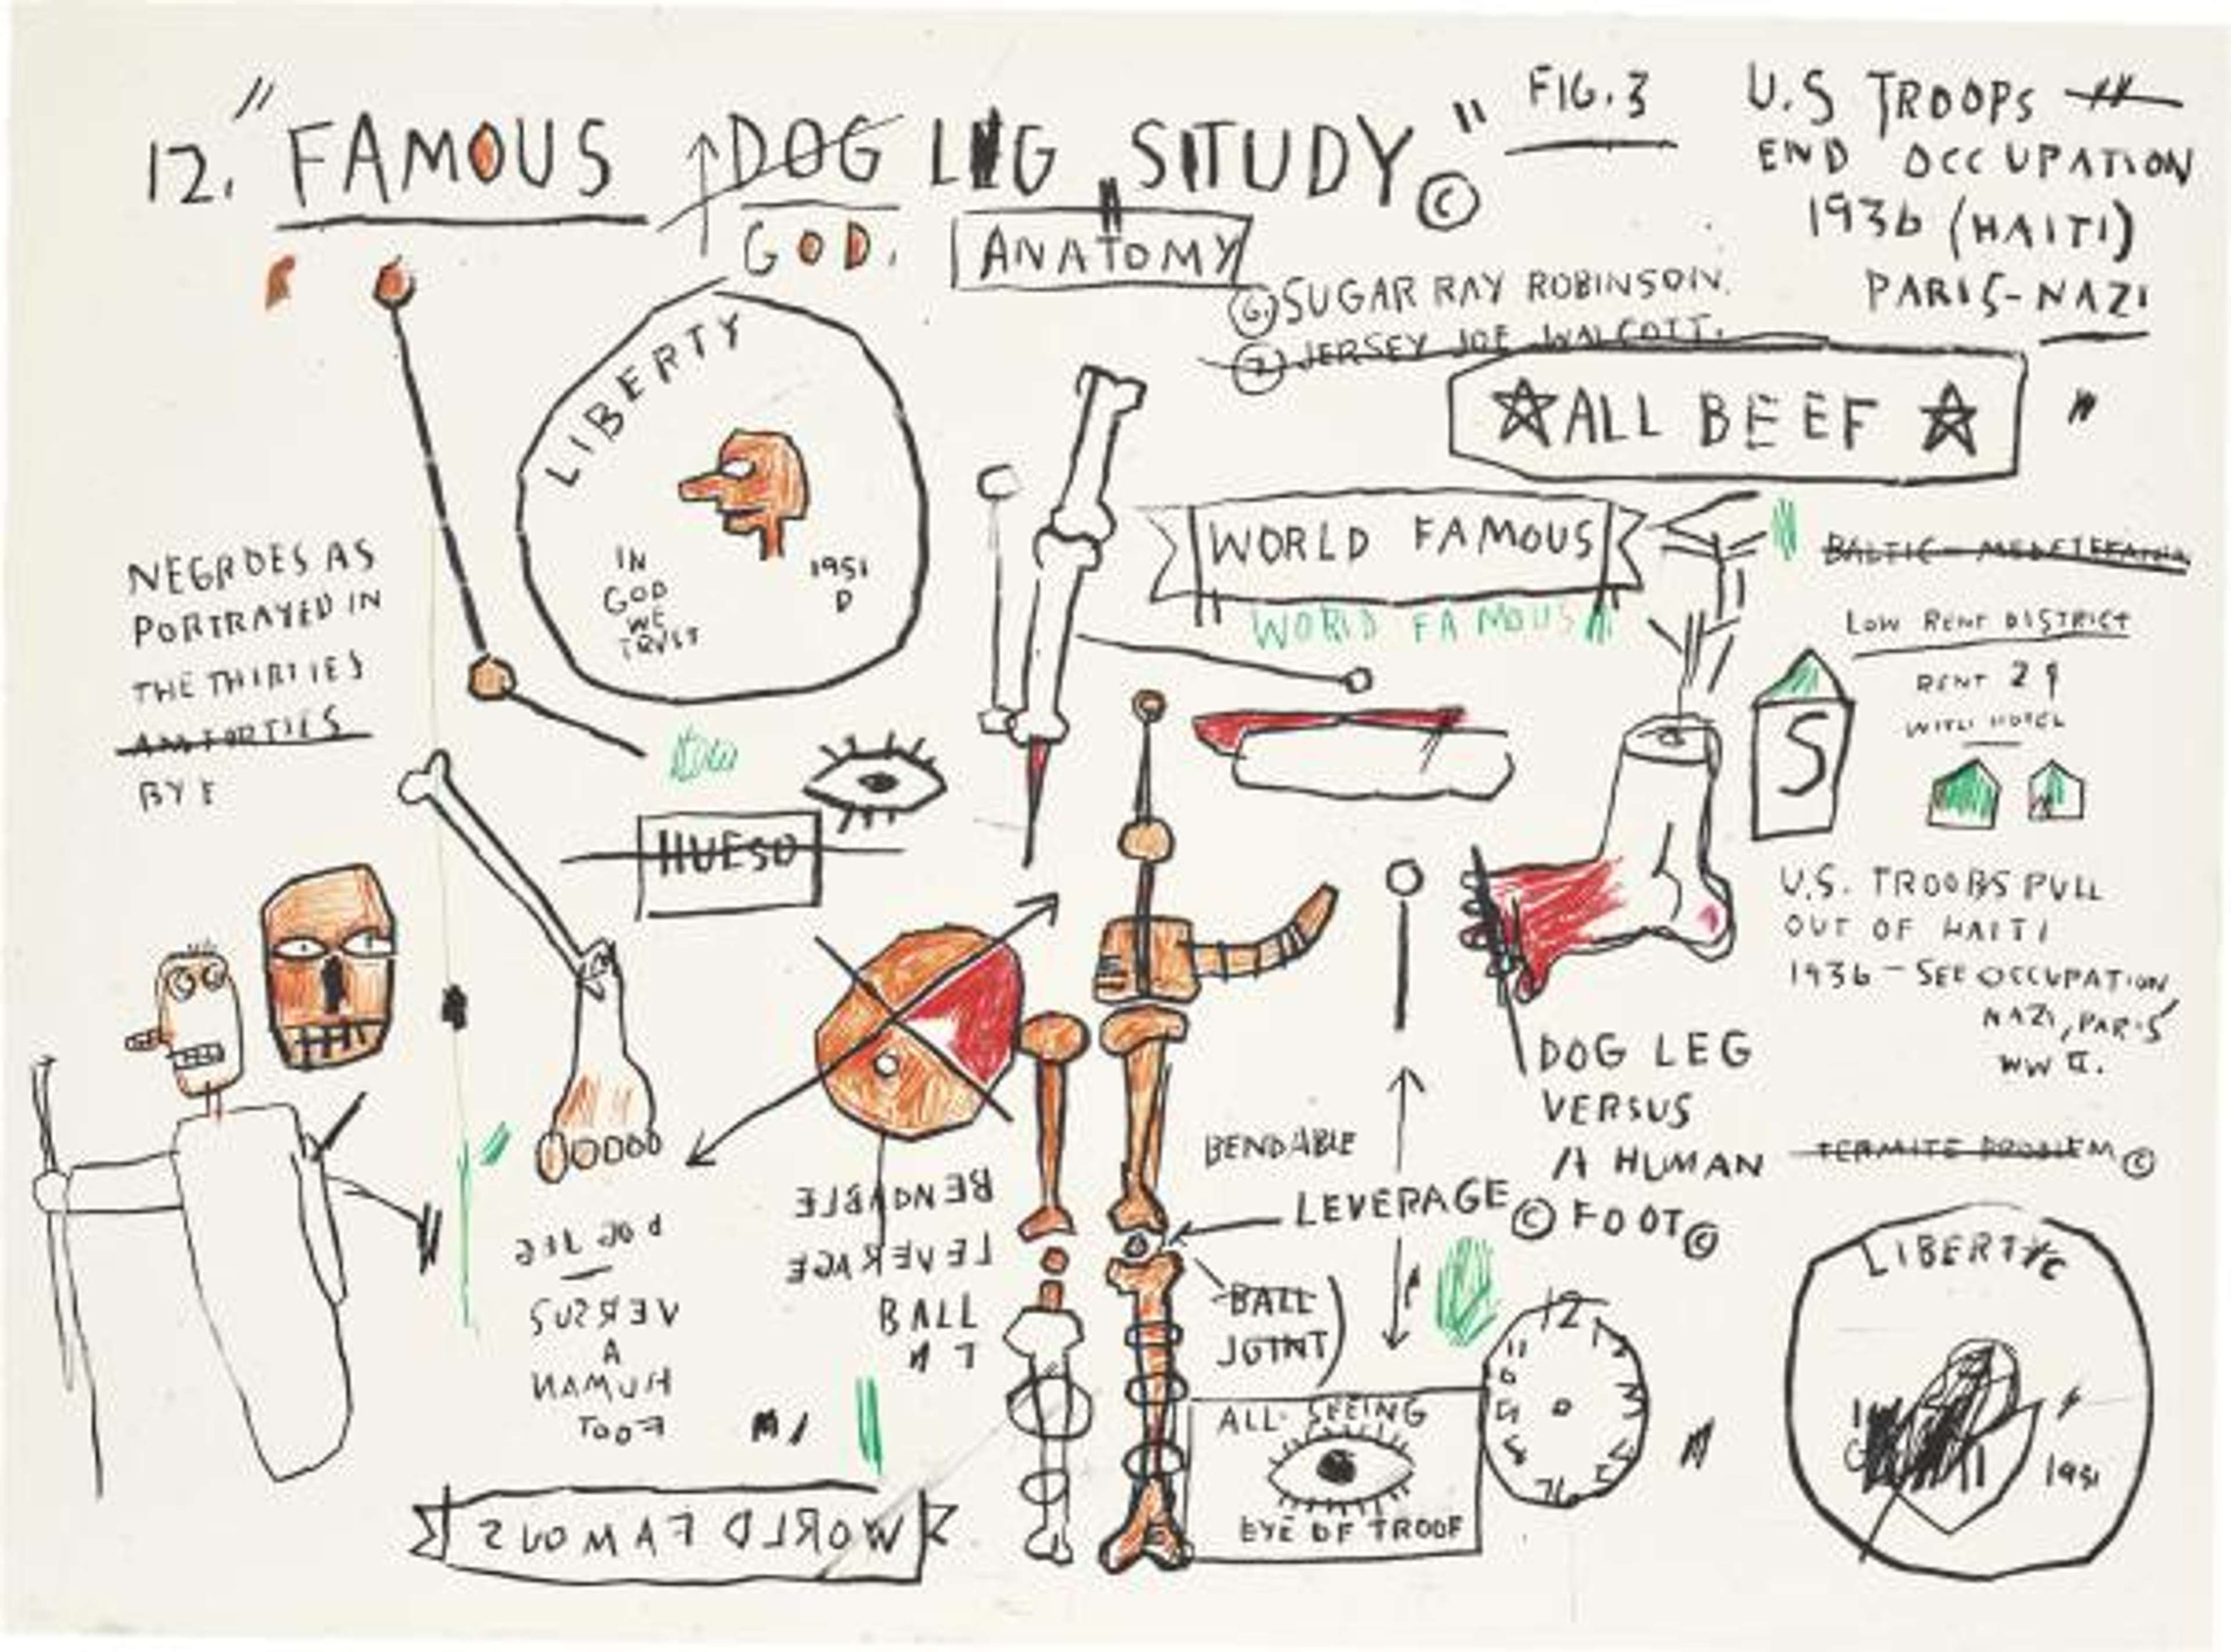 12. "FAMOUS DOG LEG STUDY" ©
GOD.
ANATOMY
FIG. 3
U.S TROOPS
END OCCUPATION
1936 (HAITI)
PARIS-NAZI
6. SUGAR RAY ROBINSON.
7. JERSEY JOE WALCOTT.
ALL BEEF
LIBERTY
IN
GOD
WE
TRUST
1951
D
WORLD FAMOUS
WORLD FAMOUS
BALTIC
LOW RENT DISTRICT
RENT 2
S
NEGROES AS
PORTRAYED IN
THE THIRTIES
HUESO
U.S. TROOPS PULL
OUT OF HAITI
1936 - SEE OCCUPATION
NAZI, PARIS
WW II.
DOG LEG
VERSUS
A HUMAN
FOOT ©
TERMITE PROBLEM ©
BENDABLE
LEVERAGE ©
BALL
JOINT)
BENDABLE
LEVERAGE
BALL
DOG LEG
VERSUS
A
HUMAN
FOOT
ALL SEEING
EYE OF TROOF
12
11
LIBERTY
1951
WORLD FAMOUS